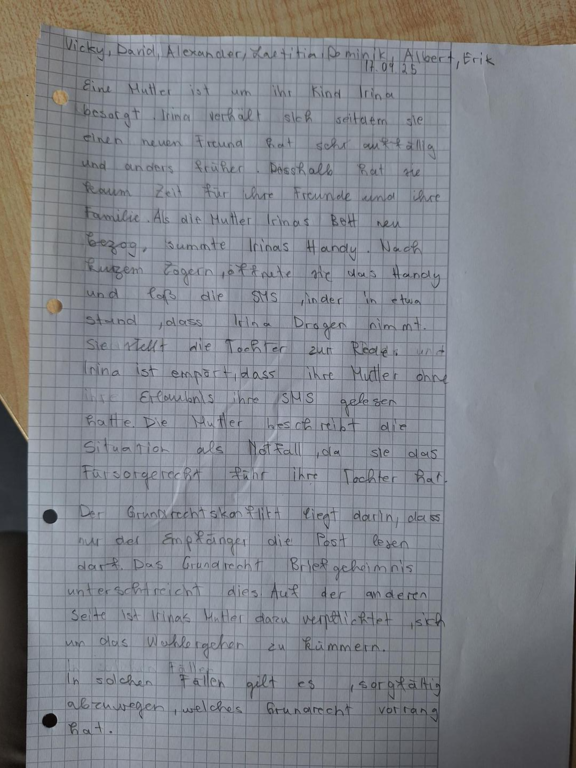 Vicky, David, Alexander, Laetitia, Dominik, Albert, Erik
17.09.25
Eine Mutter ist um ihr Kind Irina
besorgt Irina verhält sich seitdem sie
einen neuen Freund hat sehr auffällig
und anders früher. Desshalb hat sie
kaum Zeit für ihre Freunde und ihre
Familie. Als die Mutter Irinas Bett neu
bezog, summte Irinas Handy. Nach
kurzem Zögern, öffnete sie das Handy
und laß die SMS, in der in etwa
stand, dass Irina Drogen nimmt.
Sie stellt die Tochter zur Rede und
Irina ist empört, dass ihre Mutter ohne
Erlaubnis ihre SMS gelesen
hatte. Die Mutter beschreibt die
Situation als Notfall, da sie das
Fürsorgerecht führ ihre Tochter hat.
Der Grundrechtskonflikt liegt darin, dass
nur der Empfänger die Post lesen
darf. Das Grundrecht Briefgeheimnis
unterschtreicht dies Auf der anderen
Seite ist Irinas Mutter dazu verpflichtet, sich
um das Wohlergehen zu kümmern.
In solchen Fällen gilt es, sorgfältig
abzuwegen, welches Grundrecht vorrang
hat.